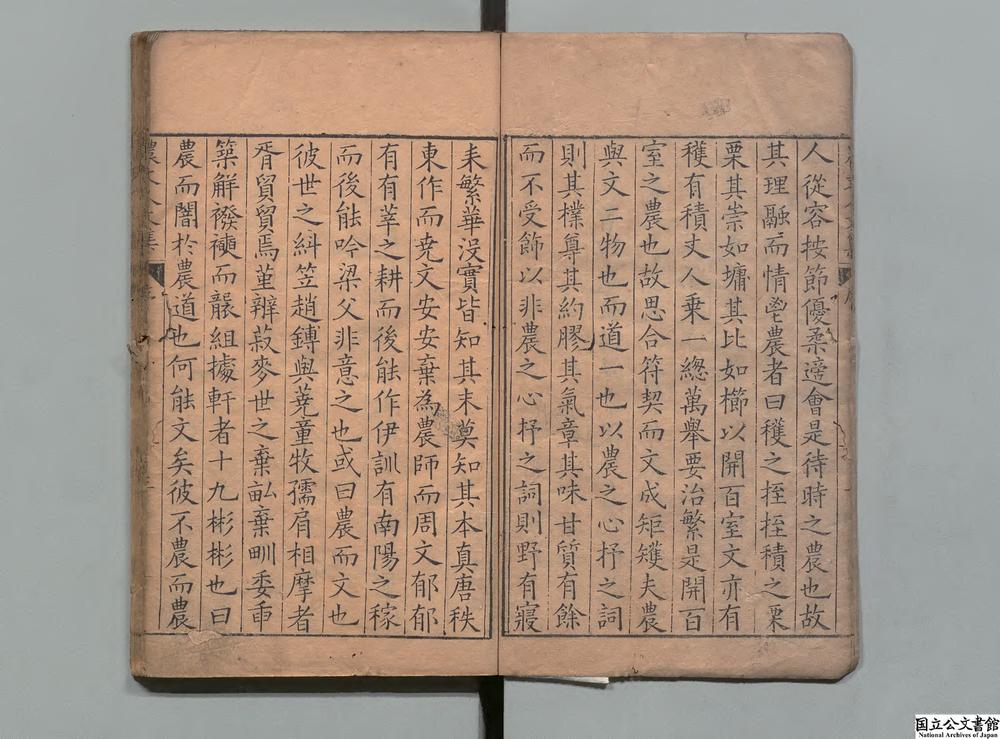 人從容按節優柔適會是待時之農也故
其理融而情鬯農者曰穫之挃挃積之栗
栗其崇如墉其比如櫛以開百室文亦有
穫有積丈人乗一緫萬舉要治繁是開百
室之農也故思合符契而文成矩矱夫農
與文二物也而道一也以農之心抒之詞
則其樸尊其約膠其氣章其味甘質有餘
而不受飾以非農之心抒之詞則野有寢
耒繁華沒實皆知其末莫知其本真唐秩
東作而尭文安安棄為農師而周文郁郁
有有莘之耕而後能作伊訓有南陽之稼
而後能吟梁父非意之也或曰農而文也
彼世之糾笠趙鎛與蕘童牧孺肩相摩者
胥貿貿焉菫辨菽麥世之棄畆棄甽委重
築觧襏襫而龑組據軒者十九彬彬也曰
農而闇於農道也何能文矣彼不農而農
農丈人文集
国立公文書館
National Archives of Japan